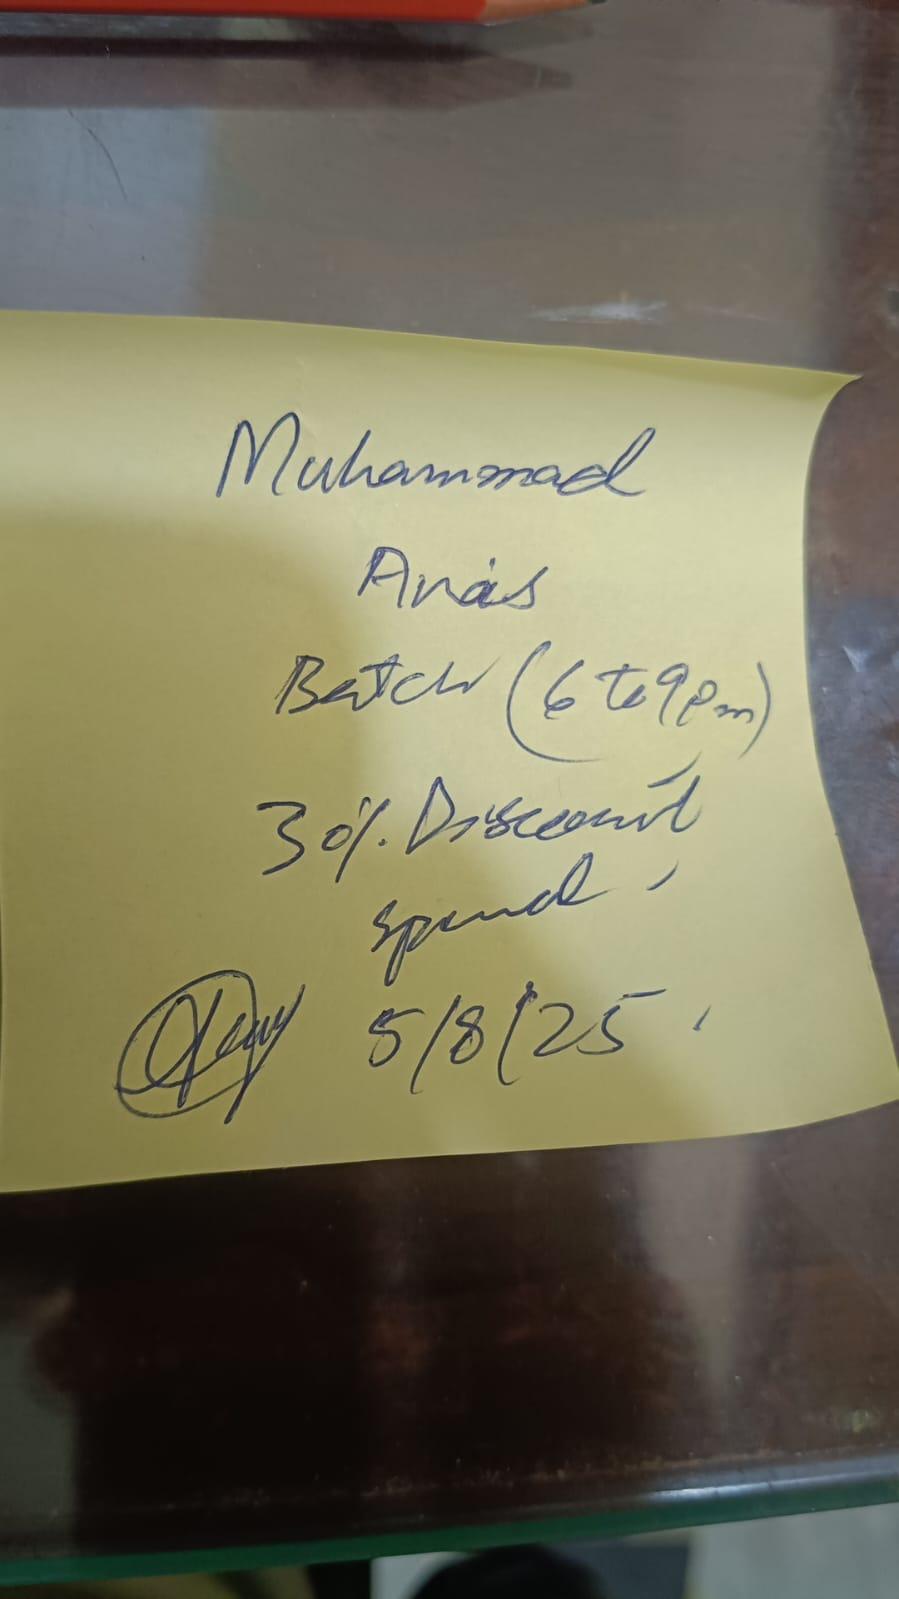 Muhammad
Anas
Batch (6 to 9pm)
30%. Discount
5/8/25